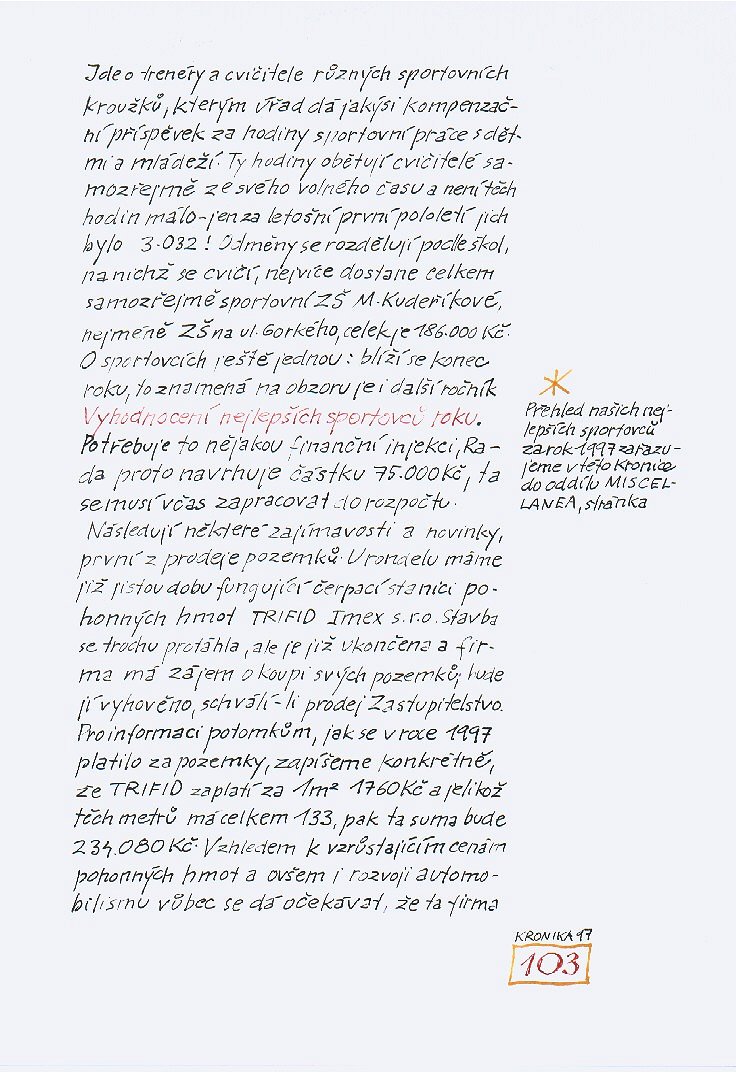 Jde o trenéry a cvičitele různých sportovních
kroužků, kterým úřad dá jakýsi kompenzač-
ní příspěvek za hodiny sportovní práce s dět-
mi a mládeží. Ty hodiny obětují cvičitelé sa-
mozřejmě ze svého volného času a není těch
hodin málo - jen za letošní první pololetí jich
bylo 3.032! Odměny se rozdělují podle škol,
na nichž se cvičí, nejvíce dostane celkem
samozřejmě sportovní ZŠ M. Kudeříkové,
nejméně ZŠ na ul. Gorkého, celek je 186.000 Kč.
O sportovcích ještě jednou: blíží se konec
roku, to znamená na obzoru je i další ročník
Vyhodnocení nejlepších sportovců roku.
Potřebuje to nějakou finanční injekci, Ra-
da proto navrhuje částku 75.000 Kč, ta
se musí včas zapracovat do rozpočtu.
Následují některé zajímavosti a novinky,
první z prodeje pozemků. U rondelu máme
již jistou dobu fungující čerpací stanici po-
honných hmot TRIFID Imex s.r.o. Stavba
se trochu protáhla, ale je již ukončena a fir-
ma má zájem o koupi svých pozemků; bude
jí vyhověno, schválí-li prodej Zastupitelstvo.
Pro informaci potomkům, jak se v roce 1997
platilo za pozemky, zapíšeme konkrétně,
že TRIFID zaplatí za 1m² 1760 Kč a jelikož
těch metrů má celkem 133, pak ta suma bude
234.080 Kč. Vzhledem k vzrůstajícím cenám
pohonných hmot a ovšem i rozvoji automo-
bilismu vůbec se dá očekávat, že ta firma
Přehled našich nej-
lepších sportovců
za rok 1997 zařazu-
jeme v této kronice
do oddílu MISCEL-
LANEA, stránka
KRONIKA 97
103